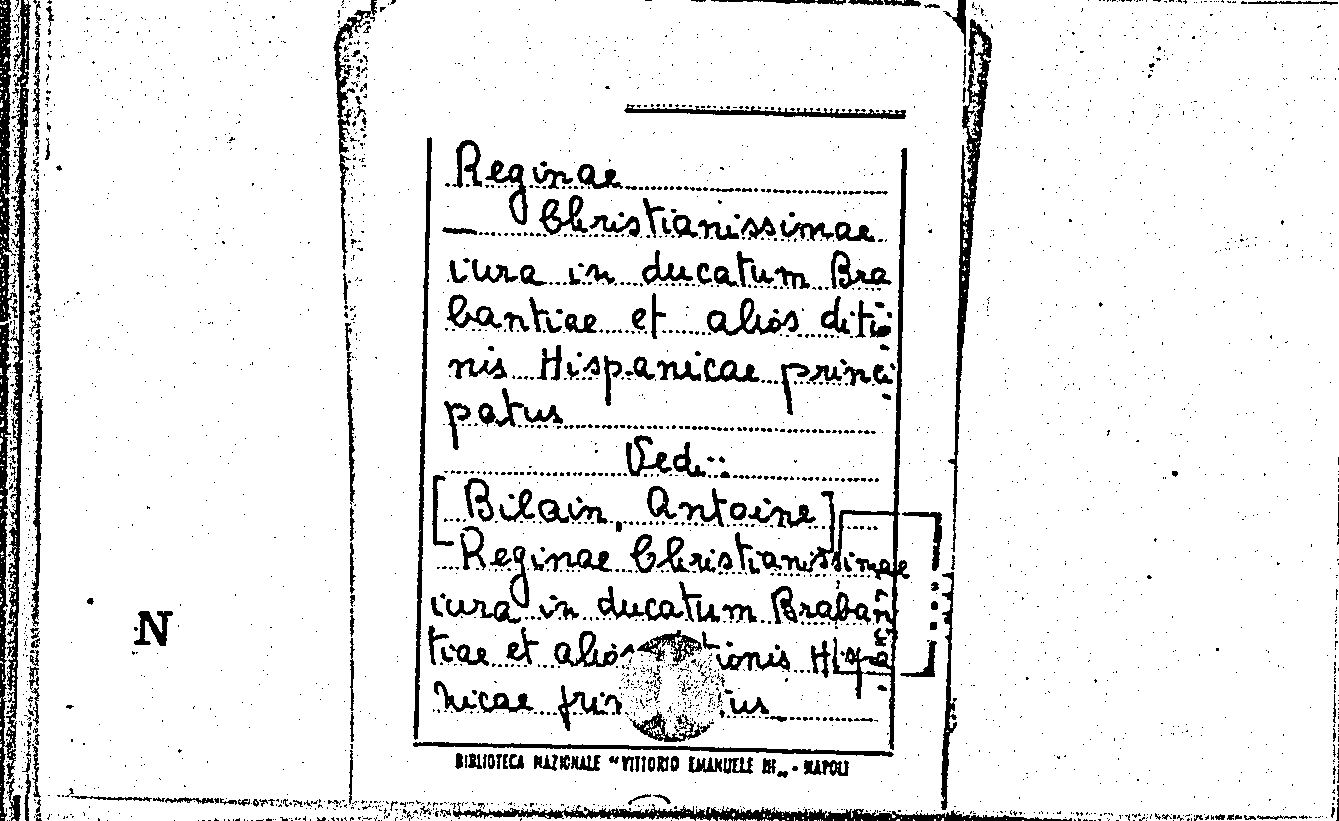 Reginae
Christianissimae
iura in ducatum Bra
bantiae et alios ditio
nis Hispanicae princi
patus
Vedi:
[Bilain, Antoine]
Reginae Christianissimae
iura in ducatum Braban
tiae et alios tionis Hispa
nicae prin us
N
BIBLIOTECA NAZIONALE "VITTORIO EMANUELE III„ - NAPOLI